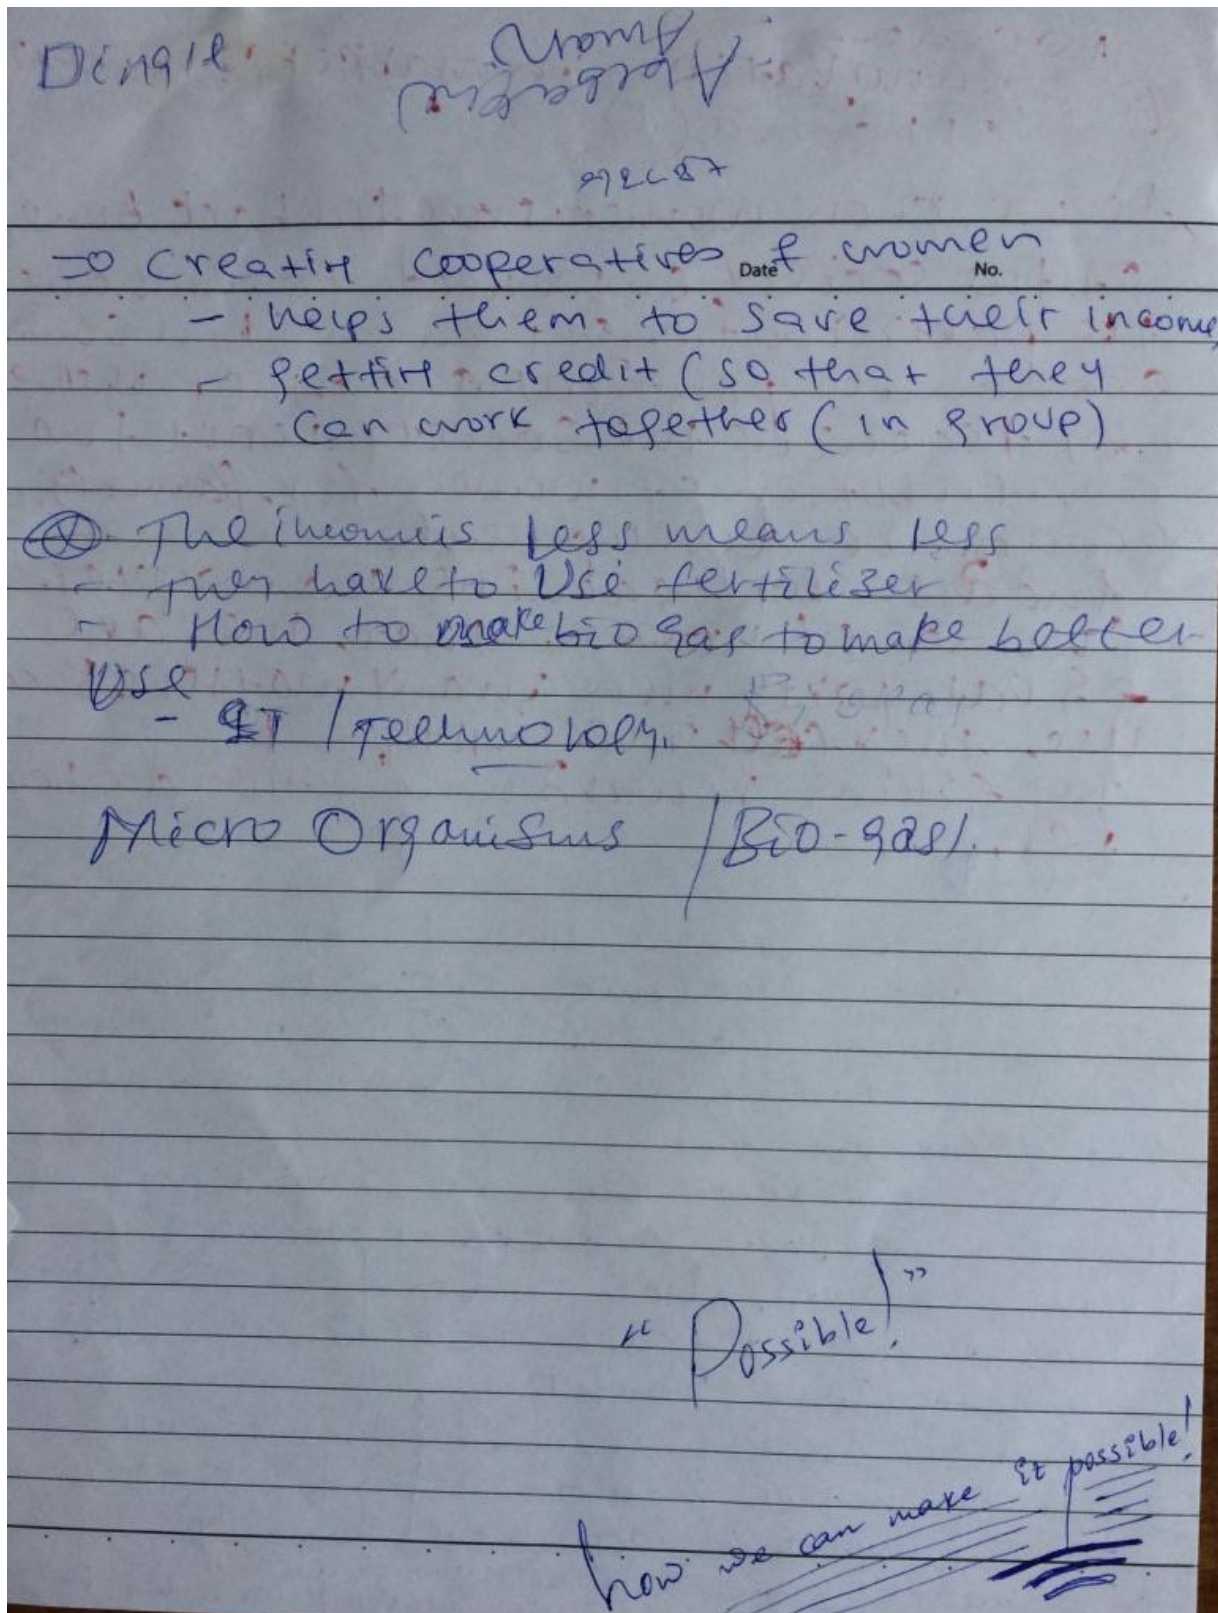 Dingle
→ Creating cooperatives of women
Date No.
- helps them to save their income,
- getting credit (so that they
can work together (in group)
The income is less means less
- They have to use fertilizer
- How to make bio gas to make better
use
- IT / Technology.
Micro Organisms / Bio-gas/.
"Possible!"
how we can make it possible!